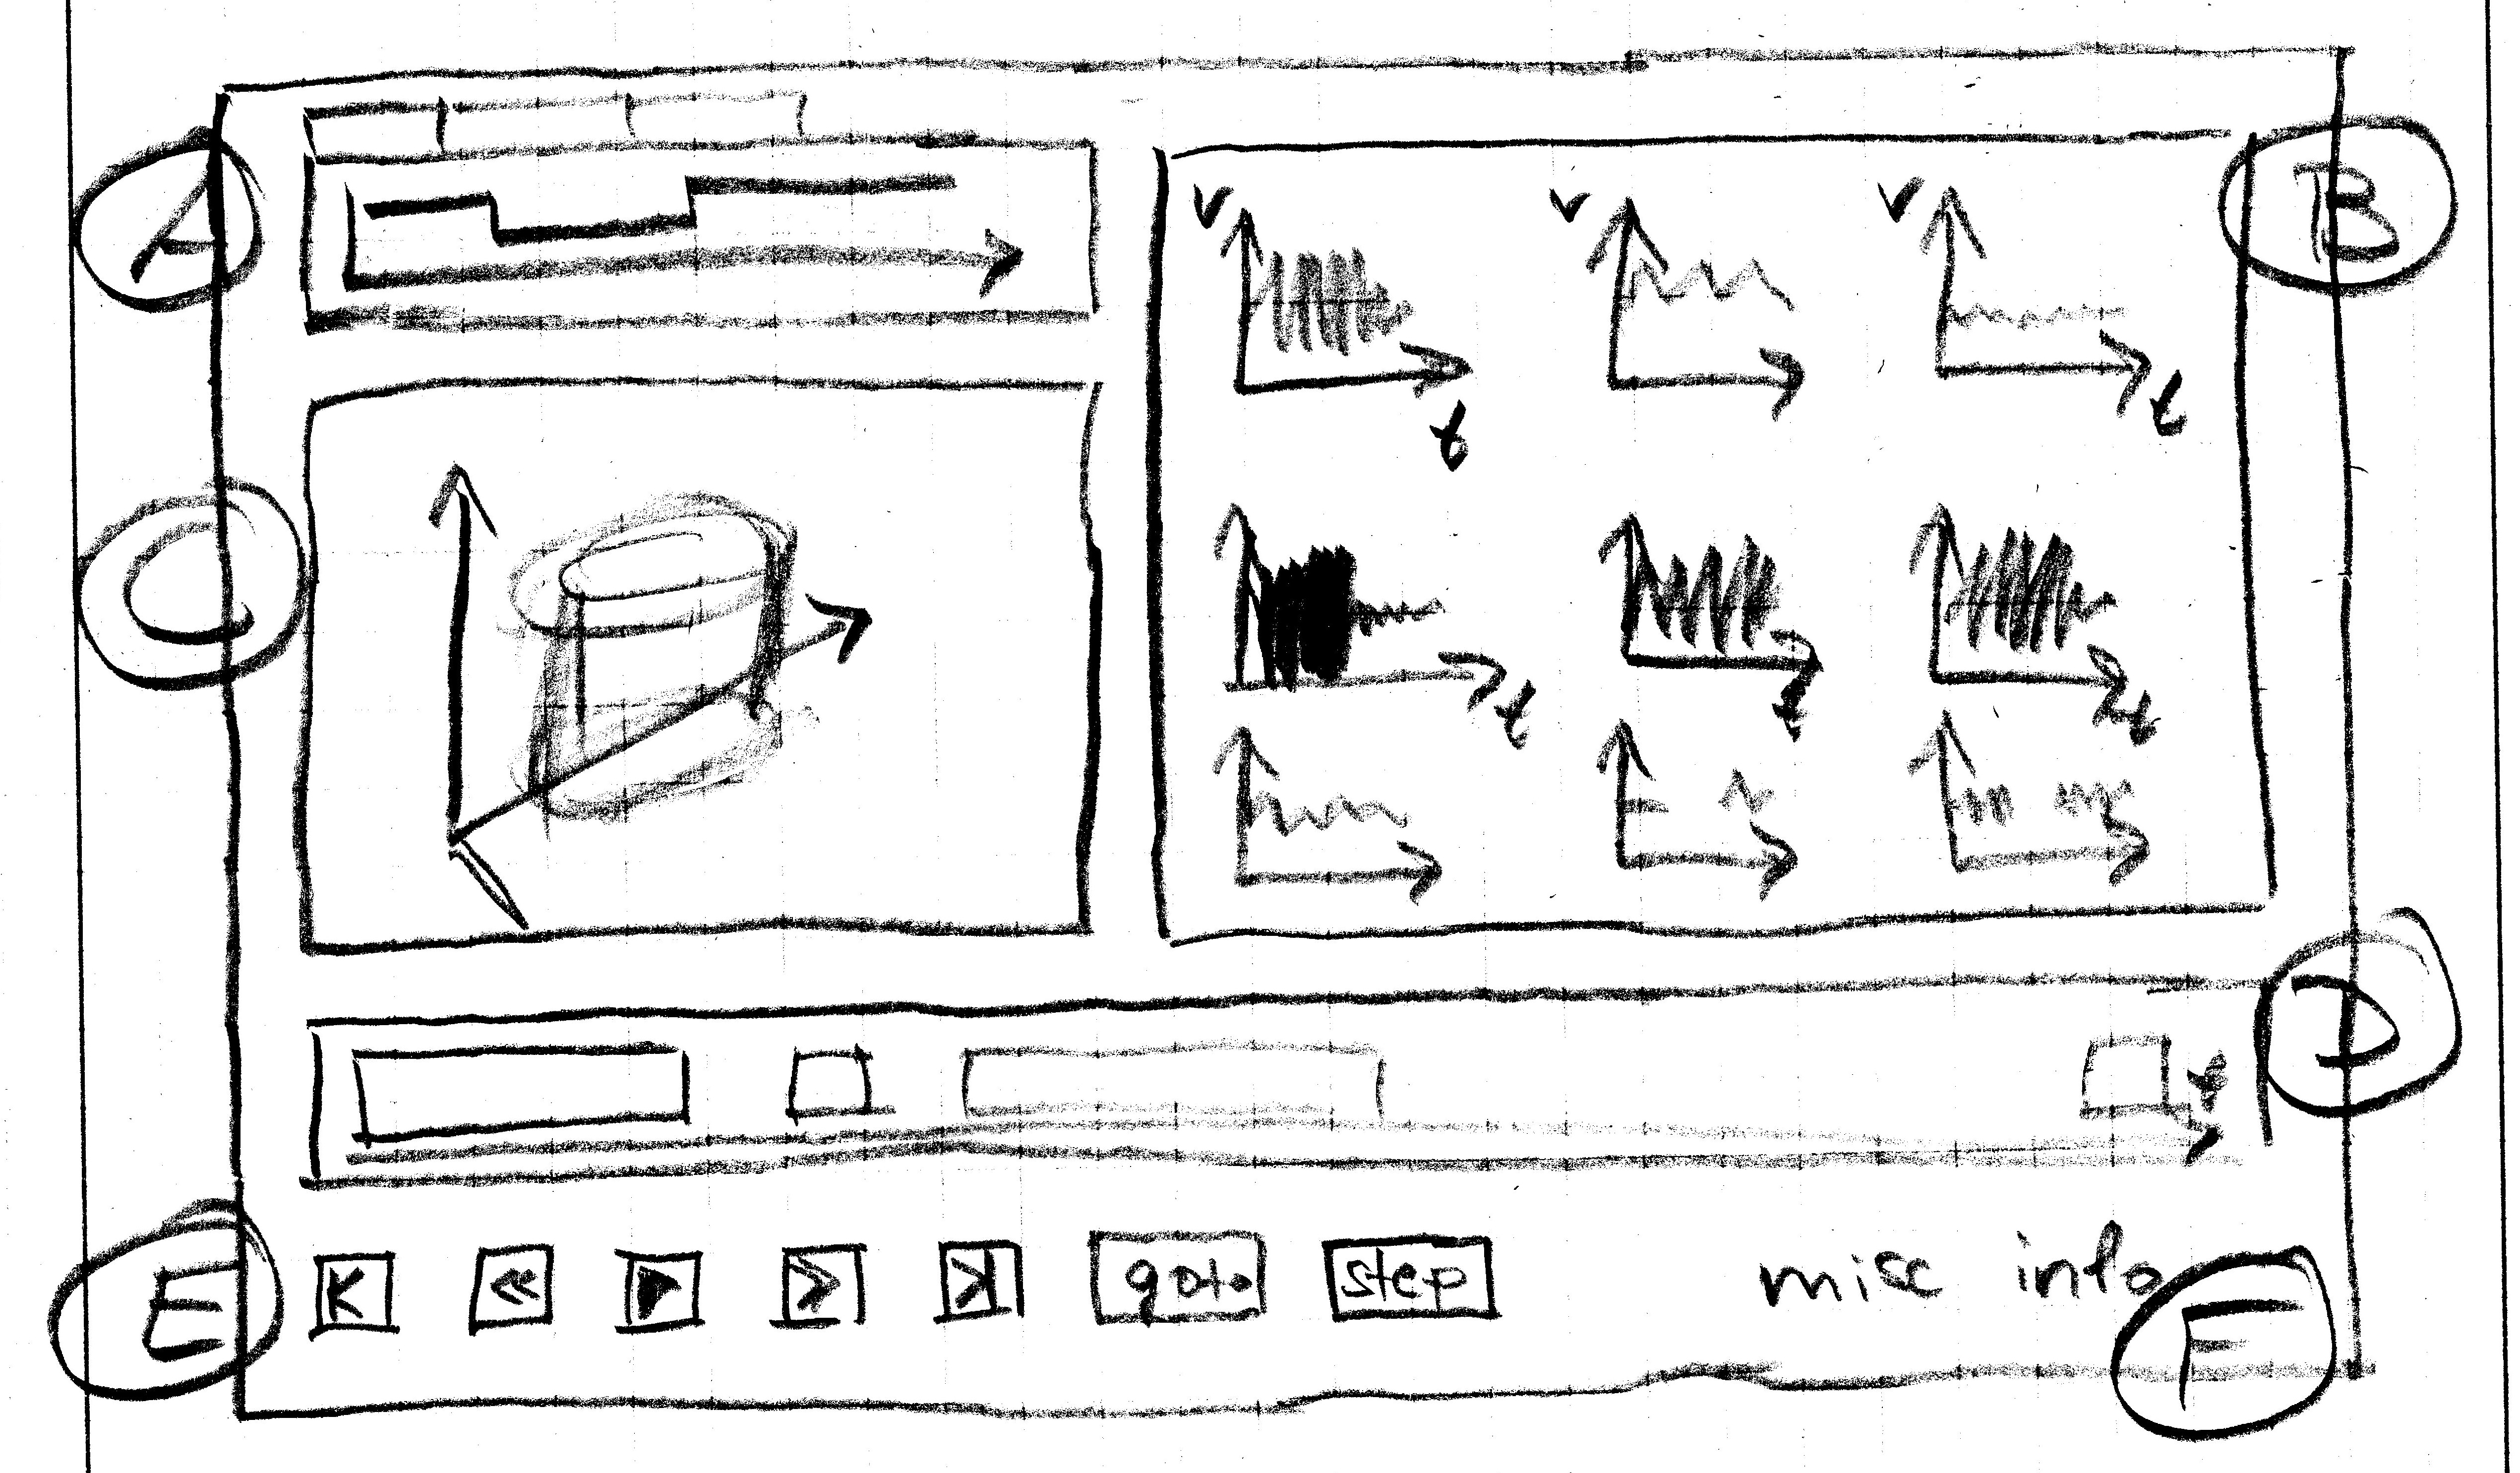 A
B
v
v
v
t
t
C
t
t
t
D
t
E
K
«
goto
step
misc info
F